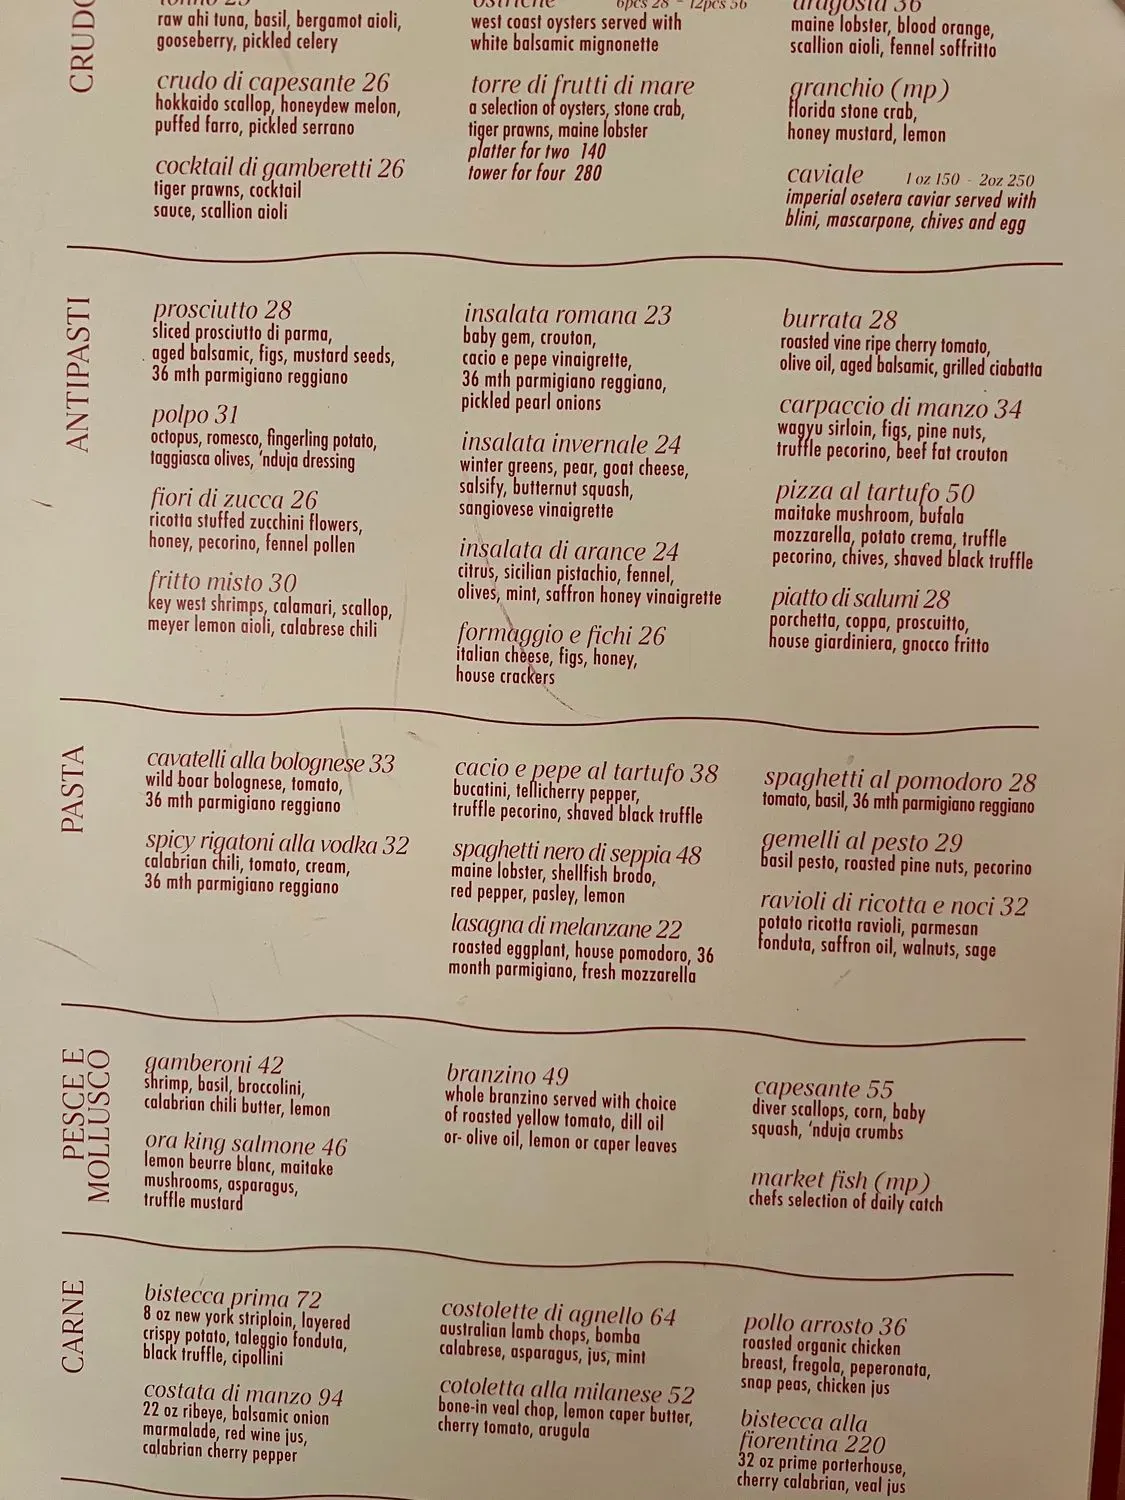 CRUDO
raw ahi tuna, basil, bergamot aioli,
gooseberry, pickled celery
crudo di capesante 26
hokkaido scallop, honeydew melon,
puffed farro, pickled serrano
cocktail di gamberetti 26
tiger prawns, cocktail
sauce, scallion aioli
6pcs 28 - 12pcs 56
west coast oysters served with
white balsamic mignonette
torre di frutti di mare
a selection of oysters, stone crab,
tiger prawns, maine lobster
platter for two 140
tower for four 280
aragosta 36
maine lobster, blood orange,
scallion aioli, fennel soffritto
granchio (mp)
florida stone crab,
honey mustard, lemon
caviale 1 oz 150 - 2oz 250
imperial osetera caviar served with
blini, mascarpone, chives and egg
ANTIPASTI
prosciutto 28
sliced prosciutto di parma,
aged balsamic, figs, mustard seeds,
36 mth parmigiano reggiano
polpo 31
octopus, romesco, fingerling potato,
taggiasca olives, 'nduja dressing
fiori di zucca 26
ricotta stuffed zucchini flowers,
honey, pecorino, fennel pollen
fritto misto 30
key west shrimps, calamari, scallop,
meyer lemon aioli, calabrese chili
insalata romana 23
baby gem, crouton,
cacio e pepe vinaigrette,
36 mth parmigiano reggiano,
pickled pearl onions
insalata invernale 24
winter greens, pear, goat cheese,
salsify, butternut squash,
sangiovese vinaigrette
insalata di arance 24
citrus, sicilian pistachio, fennel,
olives, mint, saffron honey vinaigrette
formaggio e fichi 26
italian cheese, figs, honey,
house crackers
burrata 28
roasted vine ripe cherry tomato,
olive oil, aged balsamic, grilled ciabatta
carpaccio di manzo 34
wagyu sirloin, figs, pine nuts,
truffle pecorino, beef fat crouton
pizza al tartufo 50
maitake mushroom, bufala
mozzarella, potato crema, truffle
pecorino, chives, shaved black truffle
piatto di salumi 28
porchetta, coppa, proscuitto,
house giardiniera, gnocco fritto
PASTA
cavatelli alla bolognese 33
wild boar bolognese, tomato,
36 mth parmigiano reggiano
spicy rigatoni alla vodka 32
calabrian chili, tomato, cream,
36 mth parmigiano reggiano
cacio e pepe al tartufo 38
bucatini, tellicherry pepper,
truffle pecorino, shaved black truffle
spaghetti nero di seppia 48
maine lobster, shellfish brodo,
red pepper, pasley, lemon
lasagna di melanzane 22
roasted eggplant, house pomodoro, 36
month parmigiano, fresh mozzarella
spaghetti al pomodoro 28
tomato, basil, 36 mth parmigiano reggiano
gemelli al pesto 29
basil pesto, roasted pine nuts, pecorino
ravioli di ricotta e noci 32
potato ricotta ravioli, parmesan
fonduta, saffron oil, walnuts, sage
PESCE E
MOLLUSCO
gamberoni 42
shrimp, basil, broccolini,
calabrian chili butter, lemon
ora king salmone 46
lemon beurre blanc, maitake
mushrooms, asparagus,
truffle mustard
branzino 49
whole branzino served with choice
of roasted yellow tomato, dill oil
or- olive oil, lemon or caper leaves
capesante 55
diver scallops, corn, baby
squash, 'nduja crumbs
market fish (mp)
chefs selection of daily catch
CARNE
bistecca prima 72
8 oz new york striploin, layered
crispy potato, taleggio fonduta,
black truffle, cipollini
costata di manzo 94
22 oz ribeye, balsamic onion
marmalade, red wine jus,
calabrian cherry pepper
costolette di agnello 64
australian lamb chops, bomba
calabrese, asparagus, jus, mint
cotoletta alla milanese 52
bone-in veal chop, lemon caper butter,
cherry tomato, arugula
pollo arrosto 36
roasted organic chicken
breast, fregola, peperonata,
snap peas, chicken jus
bistecca alla
fiorentina 220
32 oz prime porterhouse,
cherry calabrian, veal jus